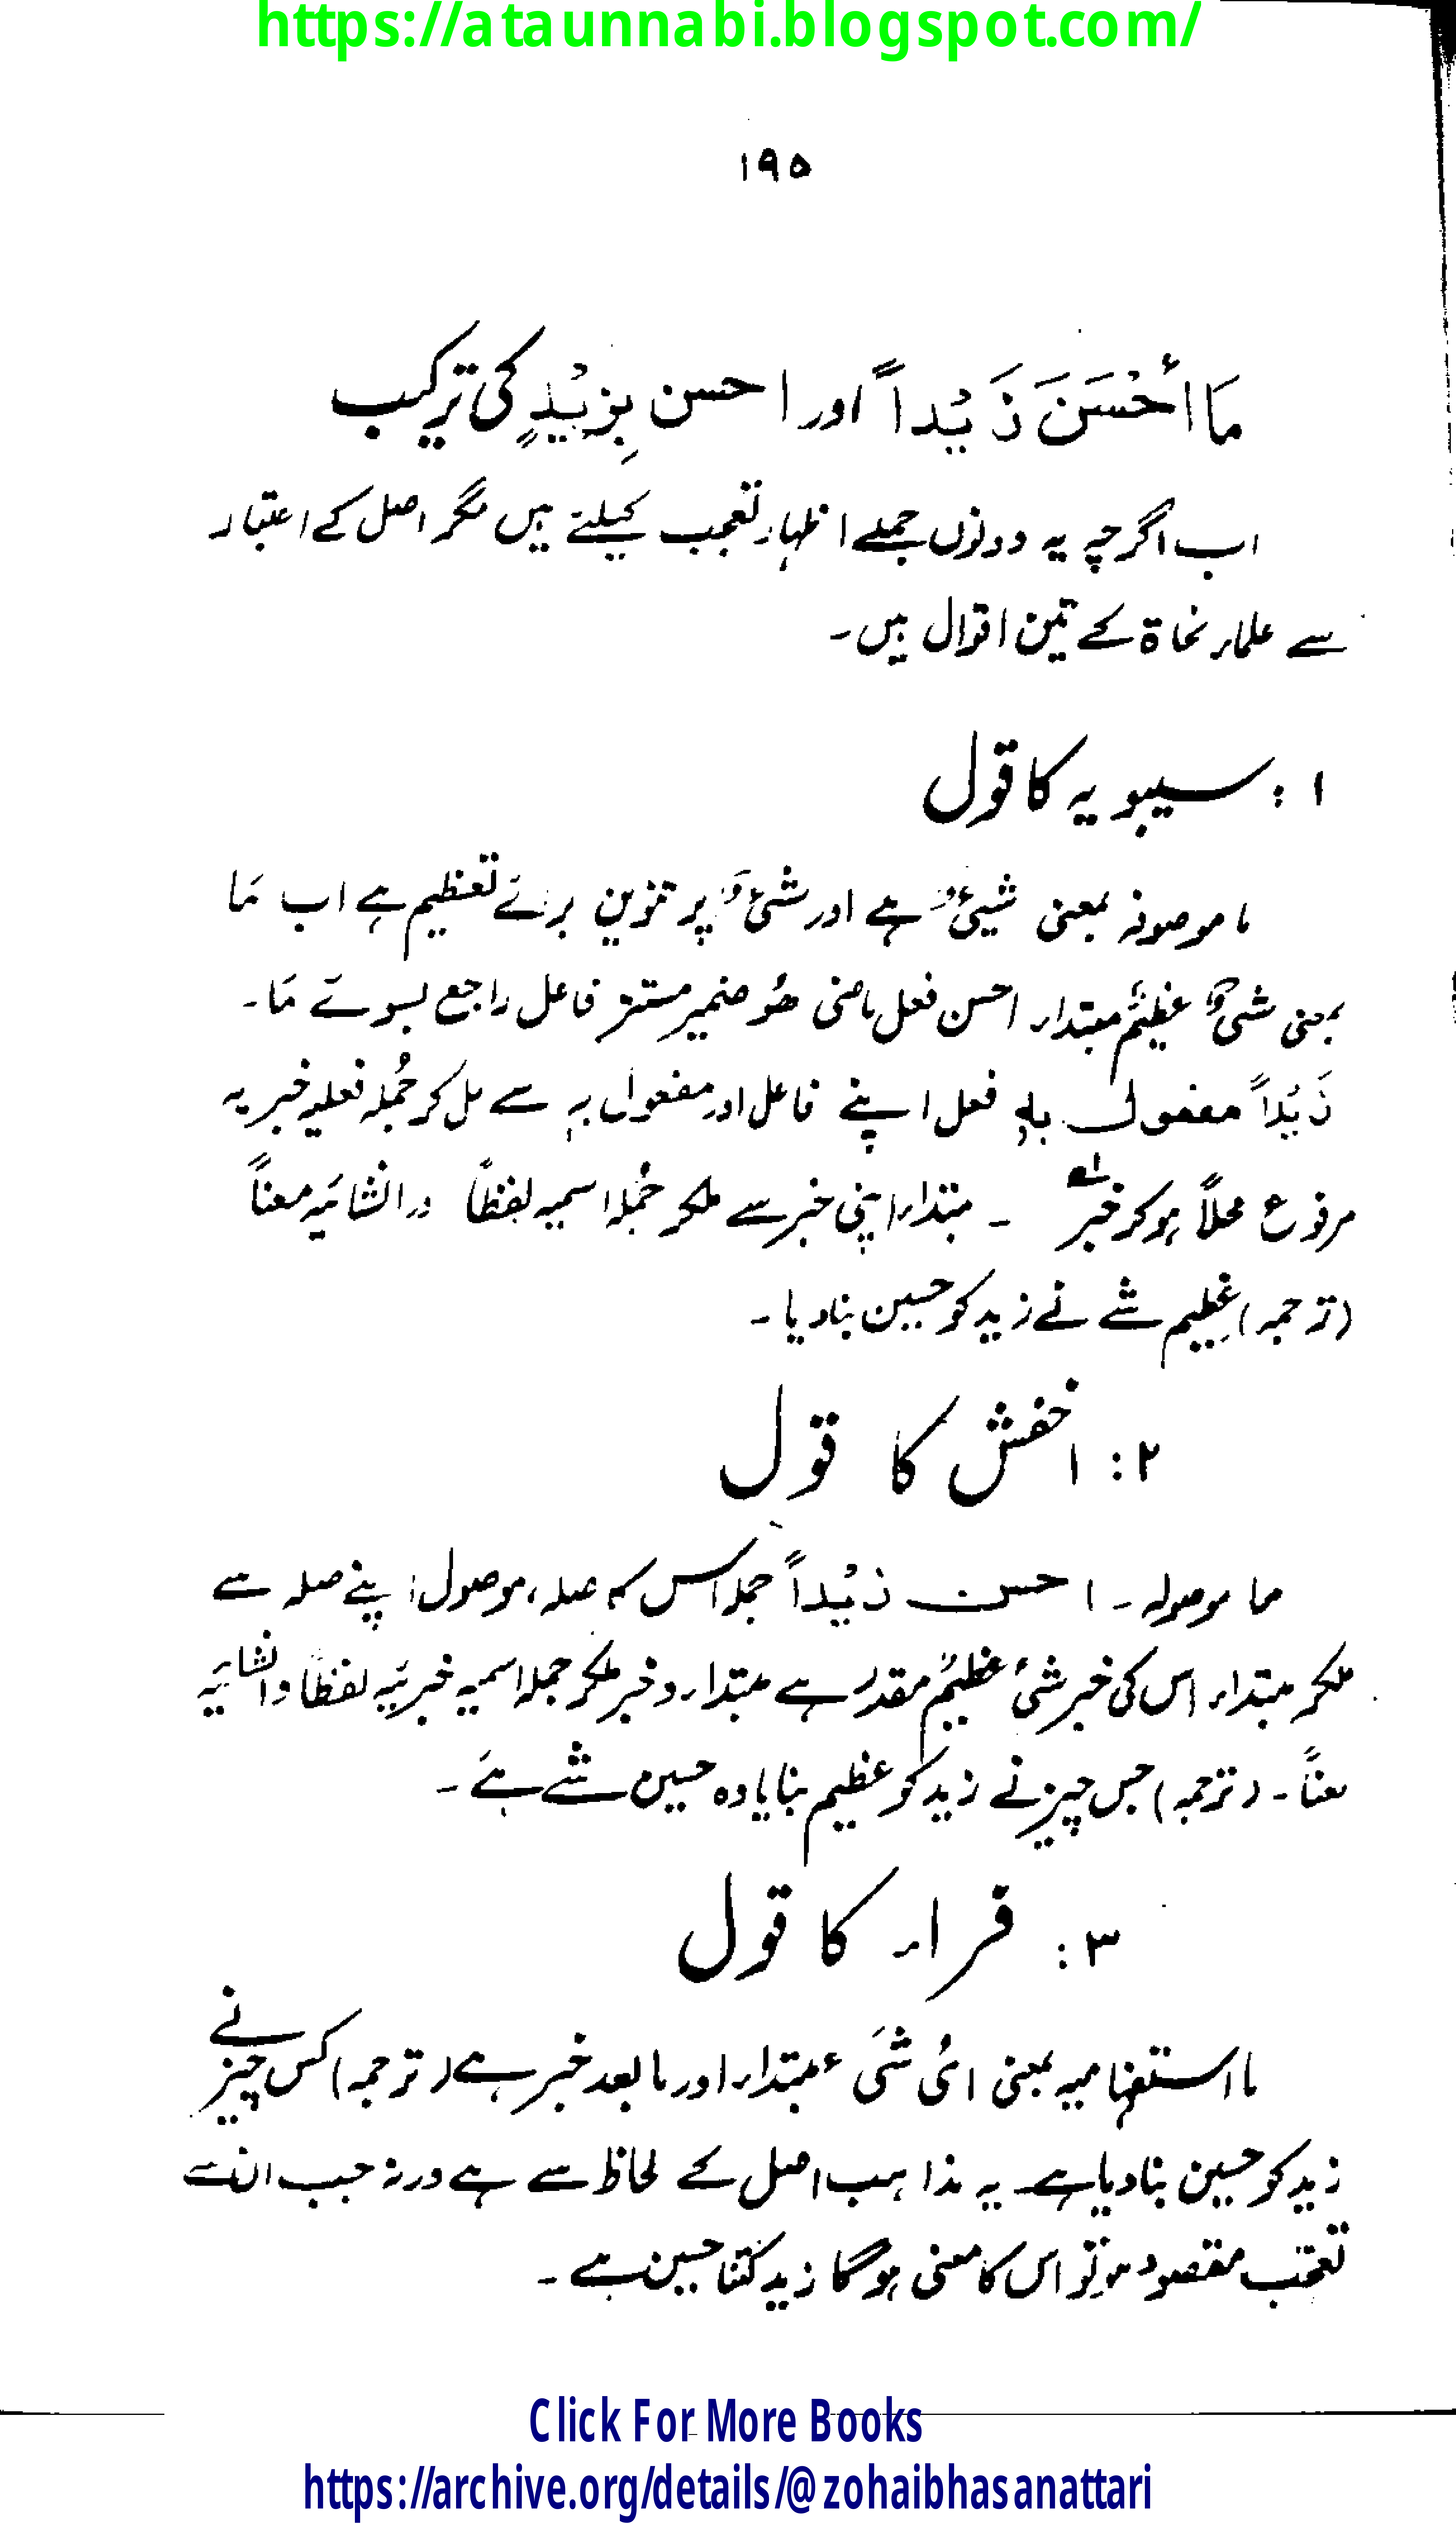 https://ataunnabi.blogspot.com/
۱۹۵
مَا أَحْسَنَ زَيْداً اور احسن بِزَيْدٍ کی ترکیب
اب اگرچہ یہ دونوں جملے اظہار تعجب کیلئے ہیں مگر اصل کے اعتبار
سے علماء نحاۃ کے تین اقوال ہیں۔
۱ : سیبویہ کا قول
ما موصوفہ بمعنی شیئٌ ہے اور شئٌ پر تنوین برائے تعظیم ہے اب مَا
بمعنی شئٌ عظیمٌ مبتداء احسن فعل ماضی ھُو ضمیر مستتر فاعل راجع بسوئے مَا۔
زَیْداً مفعول بہٖ فعل اپنے فاعل اور مفعول بہٖ سے مل کر جُملہ فعلیہ خبریہ
مرفوع محلاً ہوکر خبر ۔ مبتداء اپنی خبر سے ملکر جُملہ اسمیہ لفظاً ورانشائیہ معناً
(ترجمہ) عظیم شے نے زید کو حسین بنادیا۔
۲ : اخفش کا قول
ما موصولہ ۔ احسن زیْداً جملہ اس کا صلہ، موصول اپنے صلہ سے
ملکر مبتداء اس کی خبر شئ عظیمٌ مقدر ہے مبتداء و خبر ملکر جملہ اسمیہ خبریّہ لفظاً و انشائیہ
معناً ۔ (ترجمہ) جس چیز نے زید کو عظیم بنایا وہ حسین شے ہے ۔
۳ : فراء کا قول
ما استفہامیہ بمعنی ایُّ شَیء مبتداء اور مابعد خبر ہے (ترجمہ) کس چیز نے
زید کو حسین بنادیا ہے۔ یہ مذاہب اصل کے لحاظ سے ہے ورنہ جب ان سے
تعجّب مقصود ہو تو اس کا معنی ہوگا زید کتنا حسین ہے ۔
Click For More Books
https://archive.org/details/@zohaibhasanattari